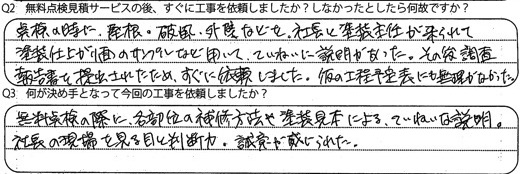 Q2 無料点検見積サービスの後、すぐに工事を依頼しましたか？しなかったとしたら何故ですか？
点検の時に、屋根・破風・外壁などを、社長と塗装主任が来られて
塗装仕上が面のサンプルなど用いて、ていねいに説明があった。その後調査
報告書を提出されたため、すぐに依頼しました。仮の工程予定表にも無理がなかった。
Q3 何が決め手となって今回の工事を依頼しましたか？
無料点検の際に、各部位の補修方法や塗装見本による、ていねいな説明。
社長の現場を見る目と判断力。誠実が感じられた。